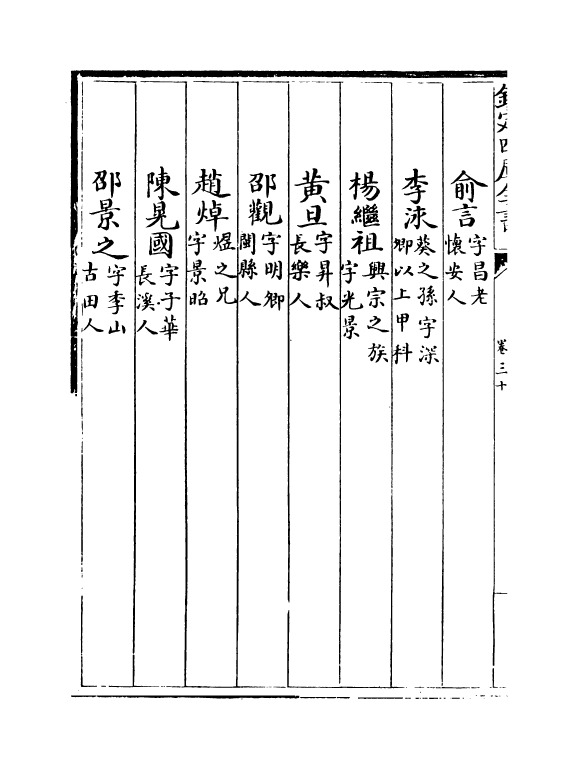 欽定四庫全書
卷三十
俞言字昌老懷安人
李浗葵之孫字深卿以上甲科
楊繼祖興宗之族字光景
黄旦字昇叔長樂人
邵觀字明卿閩縣人
趙焯煜之兄字景昭
陳晃國字子華長溪人
邵景之字季山古田人